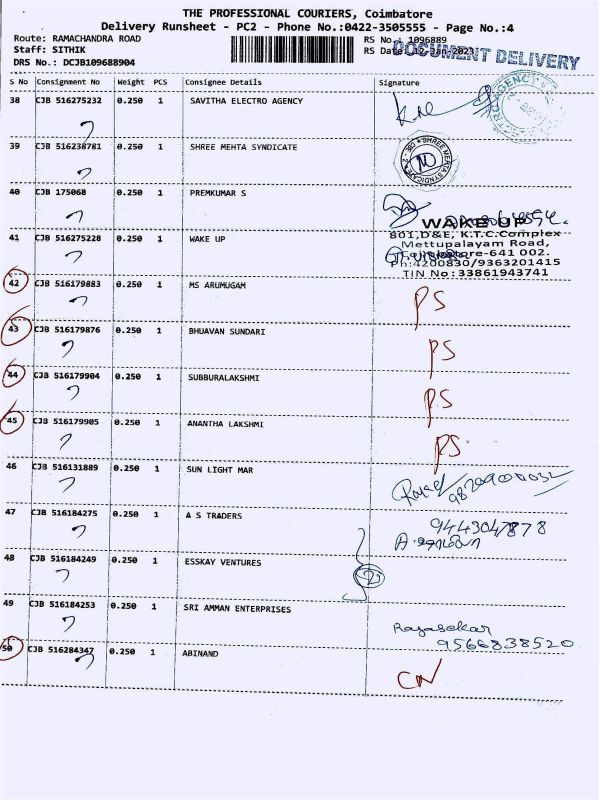 THE PROFESSIONAL COURIERS, Coimbatore
Delivery Runsheet - PC2 - Phone No.:0422-3505555 - Page No.:4
Route: RAMACHANDRA ROAD RS No : 1096889
Staff: SITHIK RS Date: 12-Jan-2023
DOCUMENT DELIVERY
DRS No.: DCJB109688904
S No Consignment No Weight PCS Consignee Details Signature
38 CJB 516275232 0.250 1 SAVITHA ELECTRO AGENCY
39 CJB 516238781 0.250 1 SHREE MEHTA SYNDICATE
SHREE MEHTA SYNDICATE
40 CJB 175068 0.250 1 PREMKUMAR S
41 CJB 516275228 0.250 1 WAKE UP
WAKE UP
801,D&E, K.T.C.Complex
Mettupalayam Road,
Coimbatore-641 002.
Ph:4200830/9363201415
TIN No:33861943741
42 CJB 516179883 0.250 1 MS ARUMUGAM PS
43 CJB 516179876 0.250 1 BHUAVAN SUNDARI PS
44 CJB 516179904 0.250 1 SUBBURALAKSHMI PS
45 CJB 516179905 0.250 1 ANANTHA LAKSHMI PS
46 CJB 516131889 0.250 1 SUN LIGHT MAR
47 CJB 516184275 0.250 1 A S TRADERS 9443047878
48 CJB 516184249 0.250 1 ESSKAY VENTURES
49 CJB 516184253 0.250 1 SRI AMMAN ENTERPRISES Rajasekar
9566838520
50 CJB 516284347 0.250 1 ABINAND CN